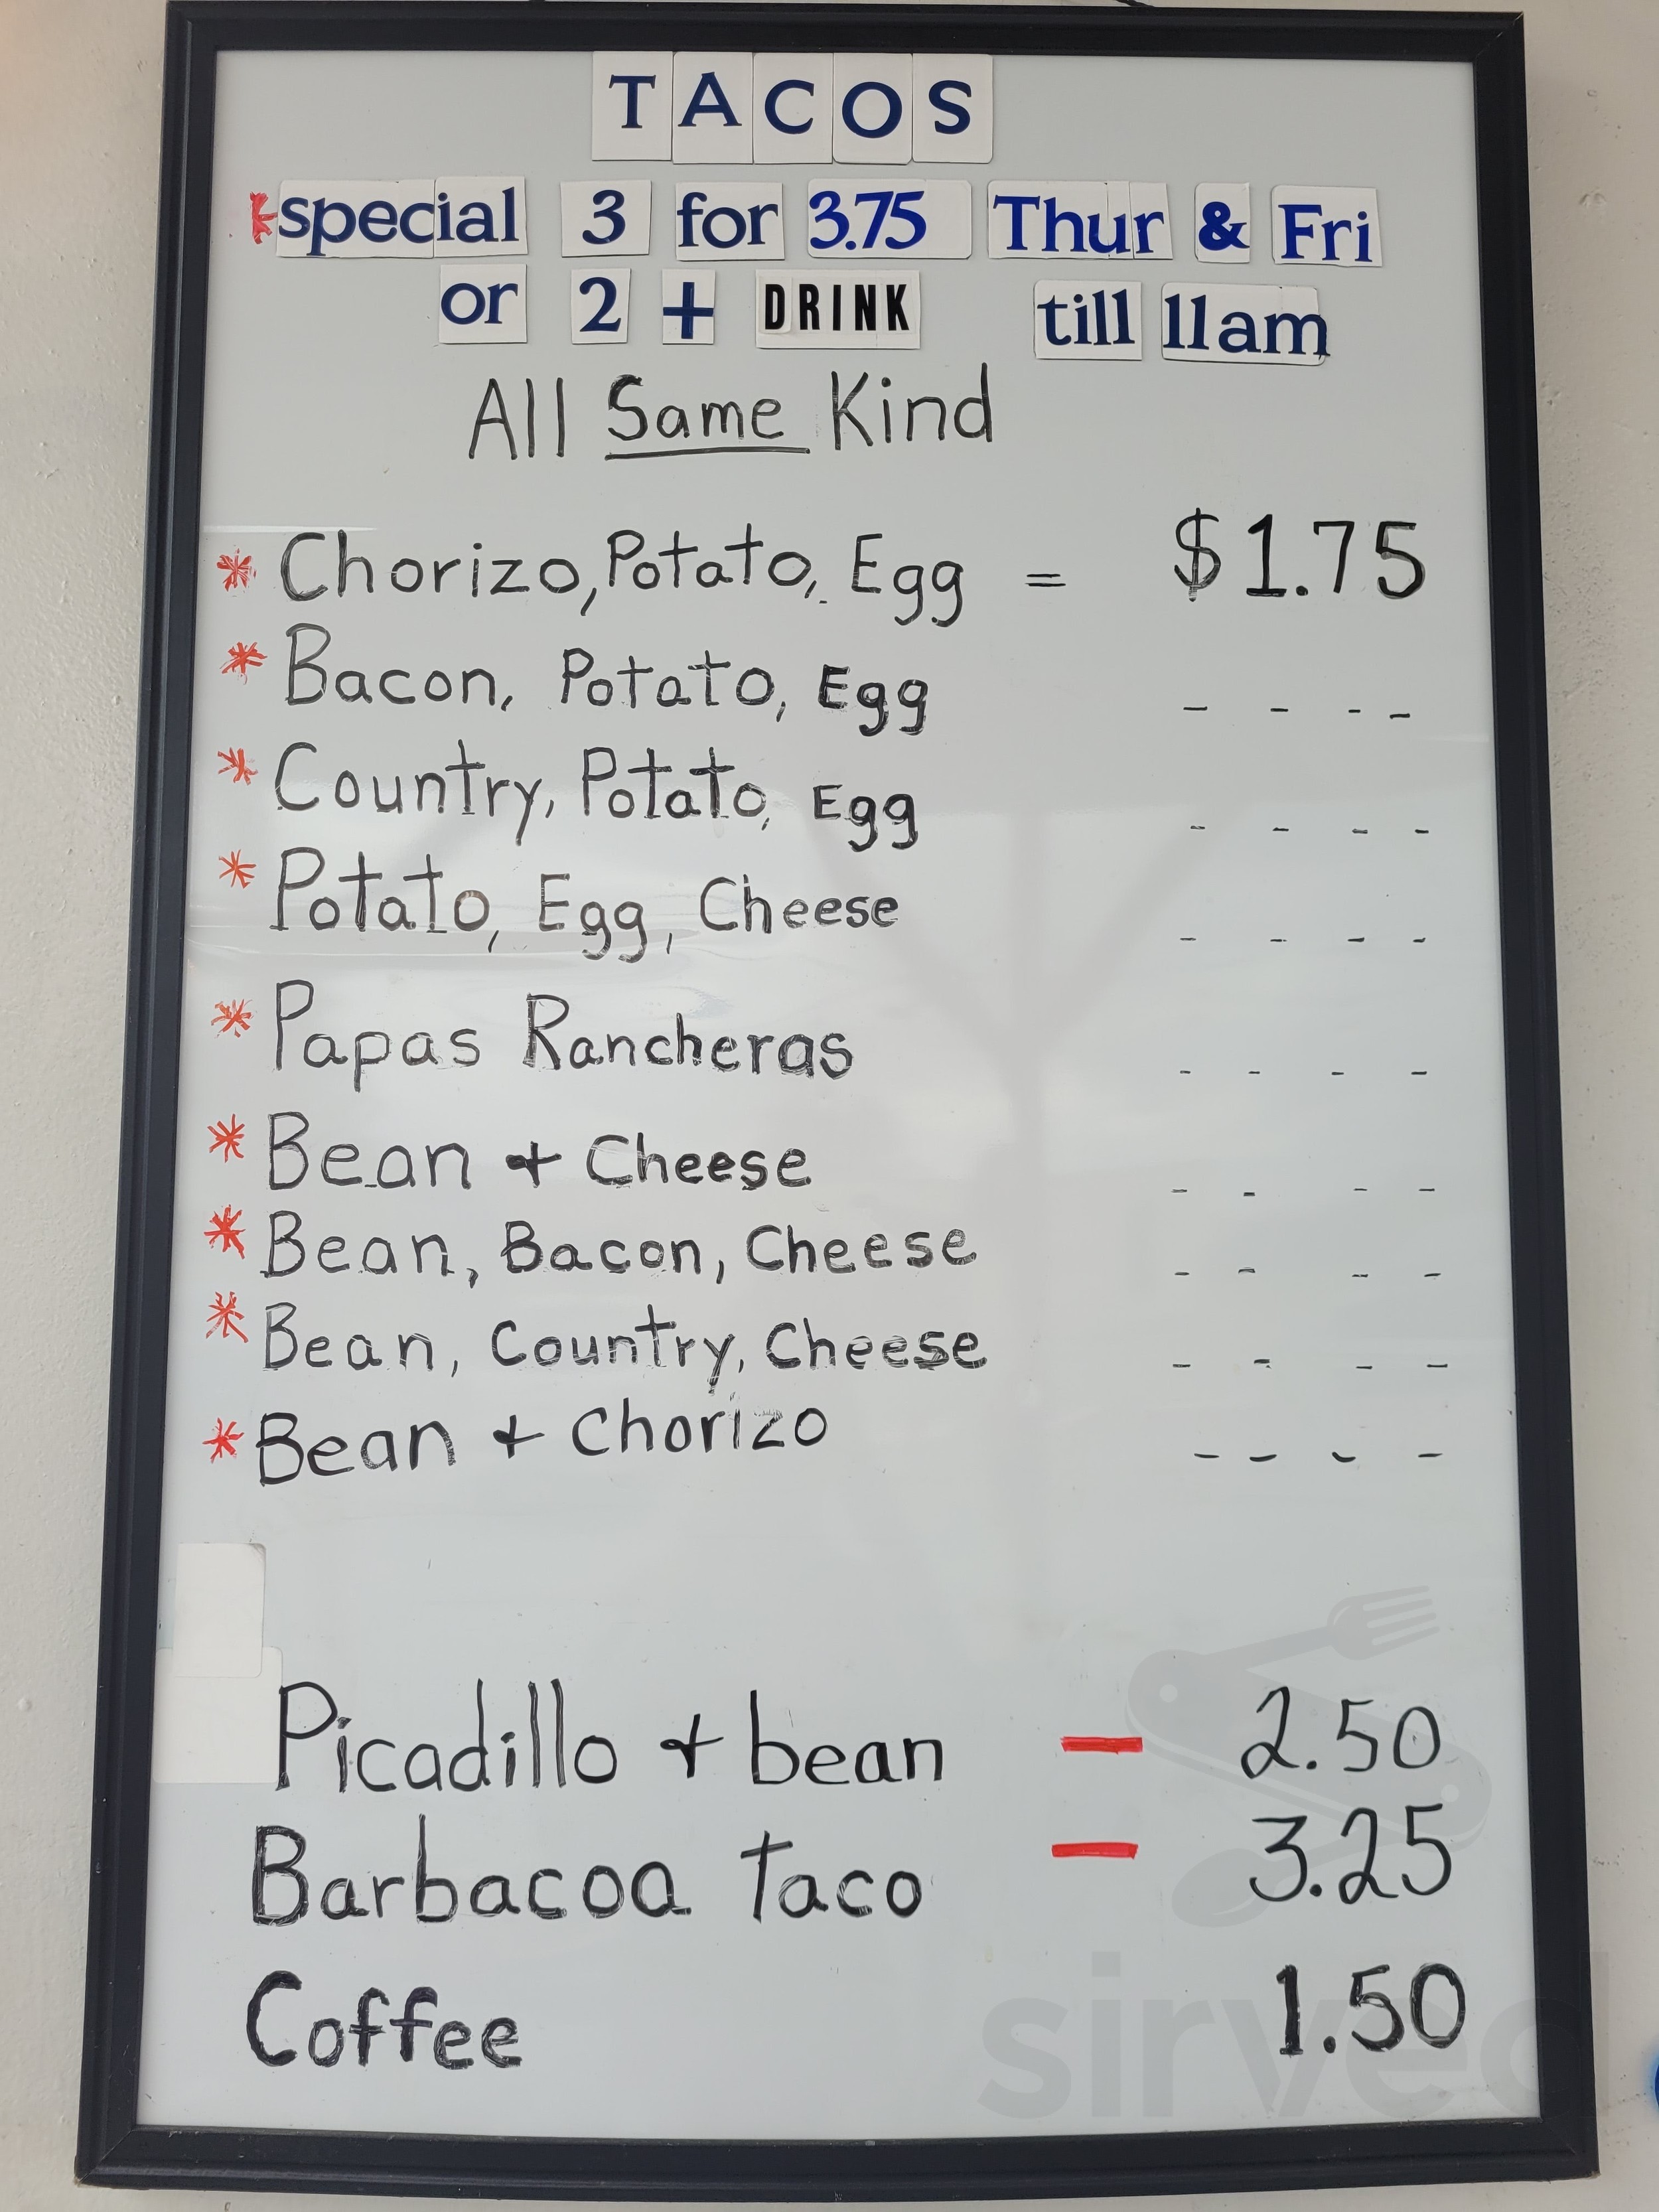 TACOS
*special 3 for 3.75 Thur & Fri
or 2 + DRINK till 11am
All Same Kind
* Chorizo, Potato, Egg = $1.75
* Bacon, Potato, Egg - - - -
* Country, Potato, Egg - - - -
* Potato, Egg, Cheese - - - -
* Papas Rancheras - - - -
* Bean + Cheese - - - -
* Bean, Bacon, Cheese - - - -
* Bean, Country, Cheese - - - -
* Bean + Chorizo - - - -
Picadillo + bean - 2.50
Barbacoa Taco - 3.25
Coffee 1.50
sirved